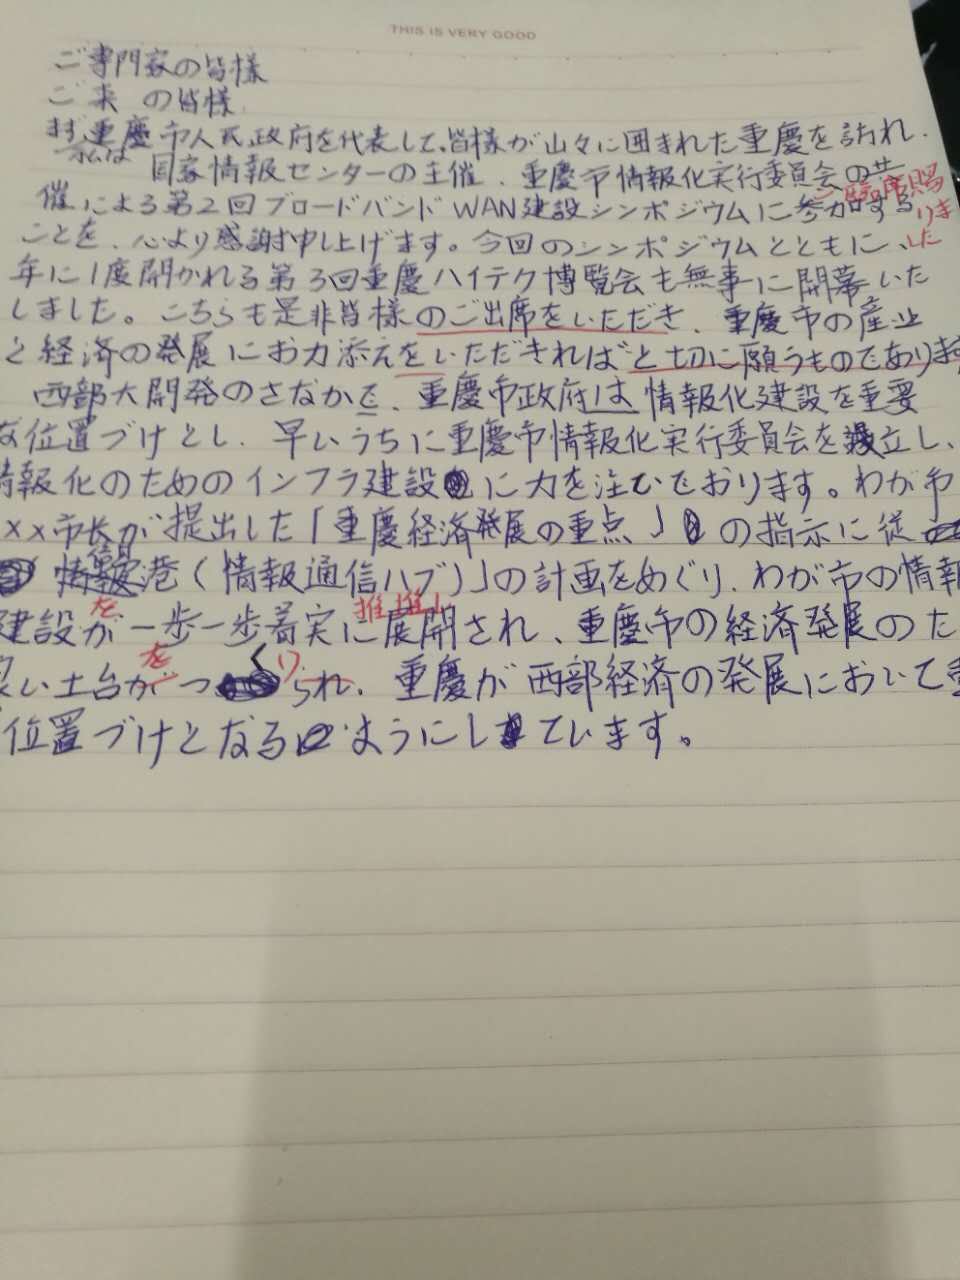 THIS IS VERY GOOD
ご専門家の皆様
ご来 の皆様
まず重慶市人民政府を代表して、皆様が山々に囲まれた重慶を訪れ、
私は 国家情報センターの主催、重慶市情報化実行委員会の共
ご臨席賜
催による第2回ブロードバンドWAN建設シンポジウムに参加する
りま
ことを、心より感謝申し上げます。今回のシンポジウムとともに、
した
年に1度開かれる第3回重慶ハイテク博覧会も無事に開幕いた
しました。こちらも是非皆様のご出席をいただき、重慶市の産業
と経済の発展にお力添えをいただきればと切に願うものであります
西部大開発のさなかで、重慶市政府は情報化建設を重要
な位置づけとし、早いうちに重慶市情報化実行委員会を設立し、
情報化のためのインフラ建設に力を注いでおります。わが市
××市長が提出した「重慶経済発展の重点」の指示に従
港(情報通信ハブ)」の計画をめぐり、わが市の情報
を 推進し
建設が一歩一歩着実に展開され、重慶市の経済発展のた
を くり
良い土台がつられ、重慶が西部経済の発展において重
位置づけとなるようにしています。